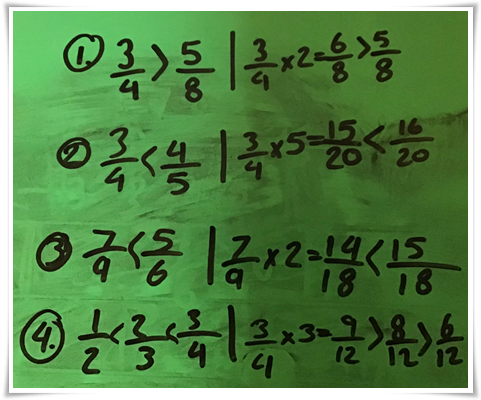 1. 3/4 > 5/8 | 3/4 x 2 = 6/8 > 5/8
2 3/4 < 4/5 | 3/4 x 5 = 15/20 < 16/20
3 7/9 < 5/6 | 7/9 x 2 = 14/18 < 15/18
4. 1/2 < 2/3 < 3/4 | 3/4 x 3 = 9/12 > 8/12 > 6/12